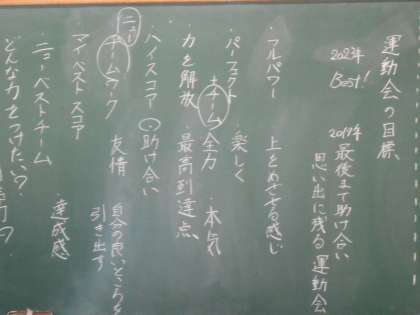 運動会の目標
2023年 Best!
2019年 最後まで助け合い
思い出に残る 運動会
・フルパワー
上をめざせる感じ
・パーフェクト
・楽しく
チーム
・全力
・本気
・力を解放
・最高到達点
・ハイスコア
・助け合い
ニュー
チームワーク
友情
自分の良いところを
引き出す
マイベストスコア
・達成感
・ニューベストチーム
どんな力をつけたい?